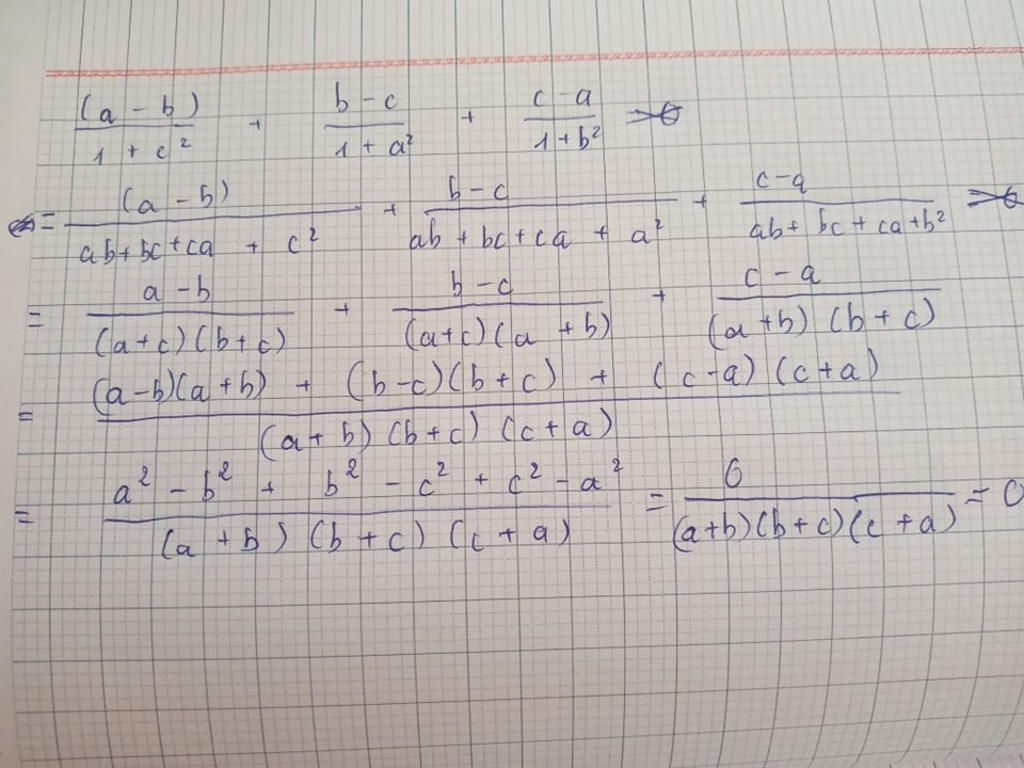 (a - b)/(1 + c²) + (b - c)/(1 + a²) + (c - a)/(1 + b²)
= (a - b)/(ab + bc + ca + c²) + (b - c)/(ab + bc + ca + a²) + (c - a)/(ab + bc + ca + b²)
= (a - b)/((a + c)(b + c)) + (b - c)/((a + c)(a + b)) + (c - a)/((a + b)(b + c))
= ((a - b)(a + b) + (b - c)(b + c) + (c - a)(c + a))/((a + b)(b + c)(c + a))
= (a² - b² + b² - c² + c² - a²)/((a + b)(b + c)(c + a)) = 0/((a + b)(b + c)(c + a)) = 0